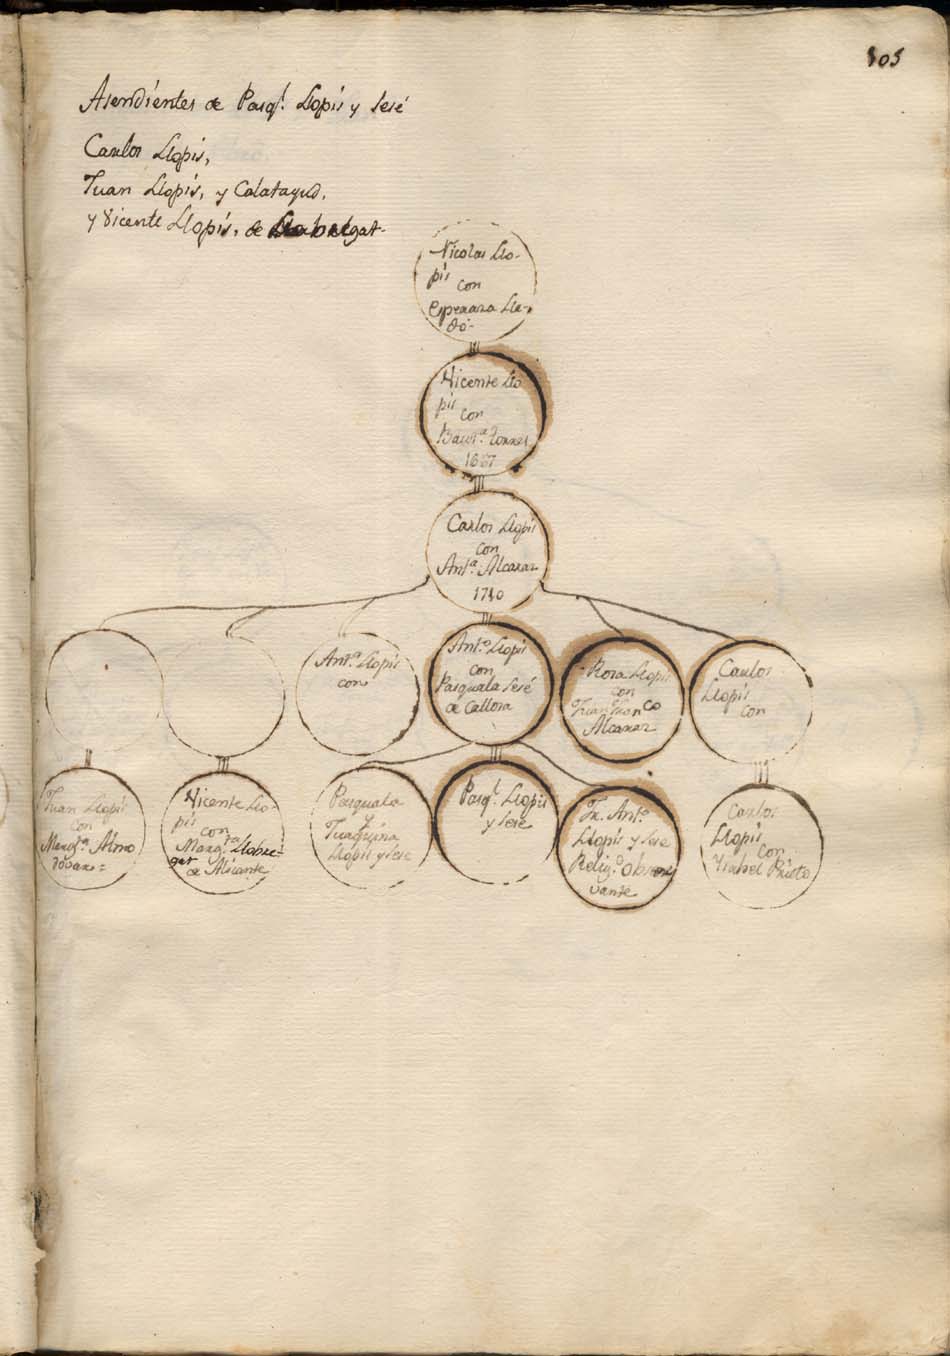 105
Asendientes de Pasql. Llopis y Sesé
Carlos Llopis,
Juan Llopis, y Calatayud,
y Vicente Llopis, de
Nicolas Llo-
pis
con
Esperanza Lle-
dó-
Vicente Llo
pis
con
Baut.ª Torres
1667
Carlos Llopis
con
Ant.ª Alcaraz
1710
Ant.ª Llopis
con
Ant.º Llopis
con
Pasquala Sesé
de Callosa
Rosa Llopis
con
Juan Fran.co
Alcaraz
Carlos
Llopis
con
Juan Llopis
con
Marg.ta Almo
dovar=
Vicente Llo-
pis
con
Marg.ta Llobre-
gat
de Alicante
Pasquala
y
Juaquina
Llopis y Sesé
Pasql. Llopis
y Sesé
Fr. Ant.º
Llopis y Sesé
Relig.º obser
vante
Carlos
Llopis
con
Ysabel Prieto